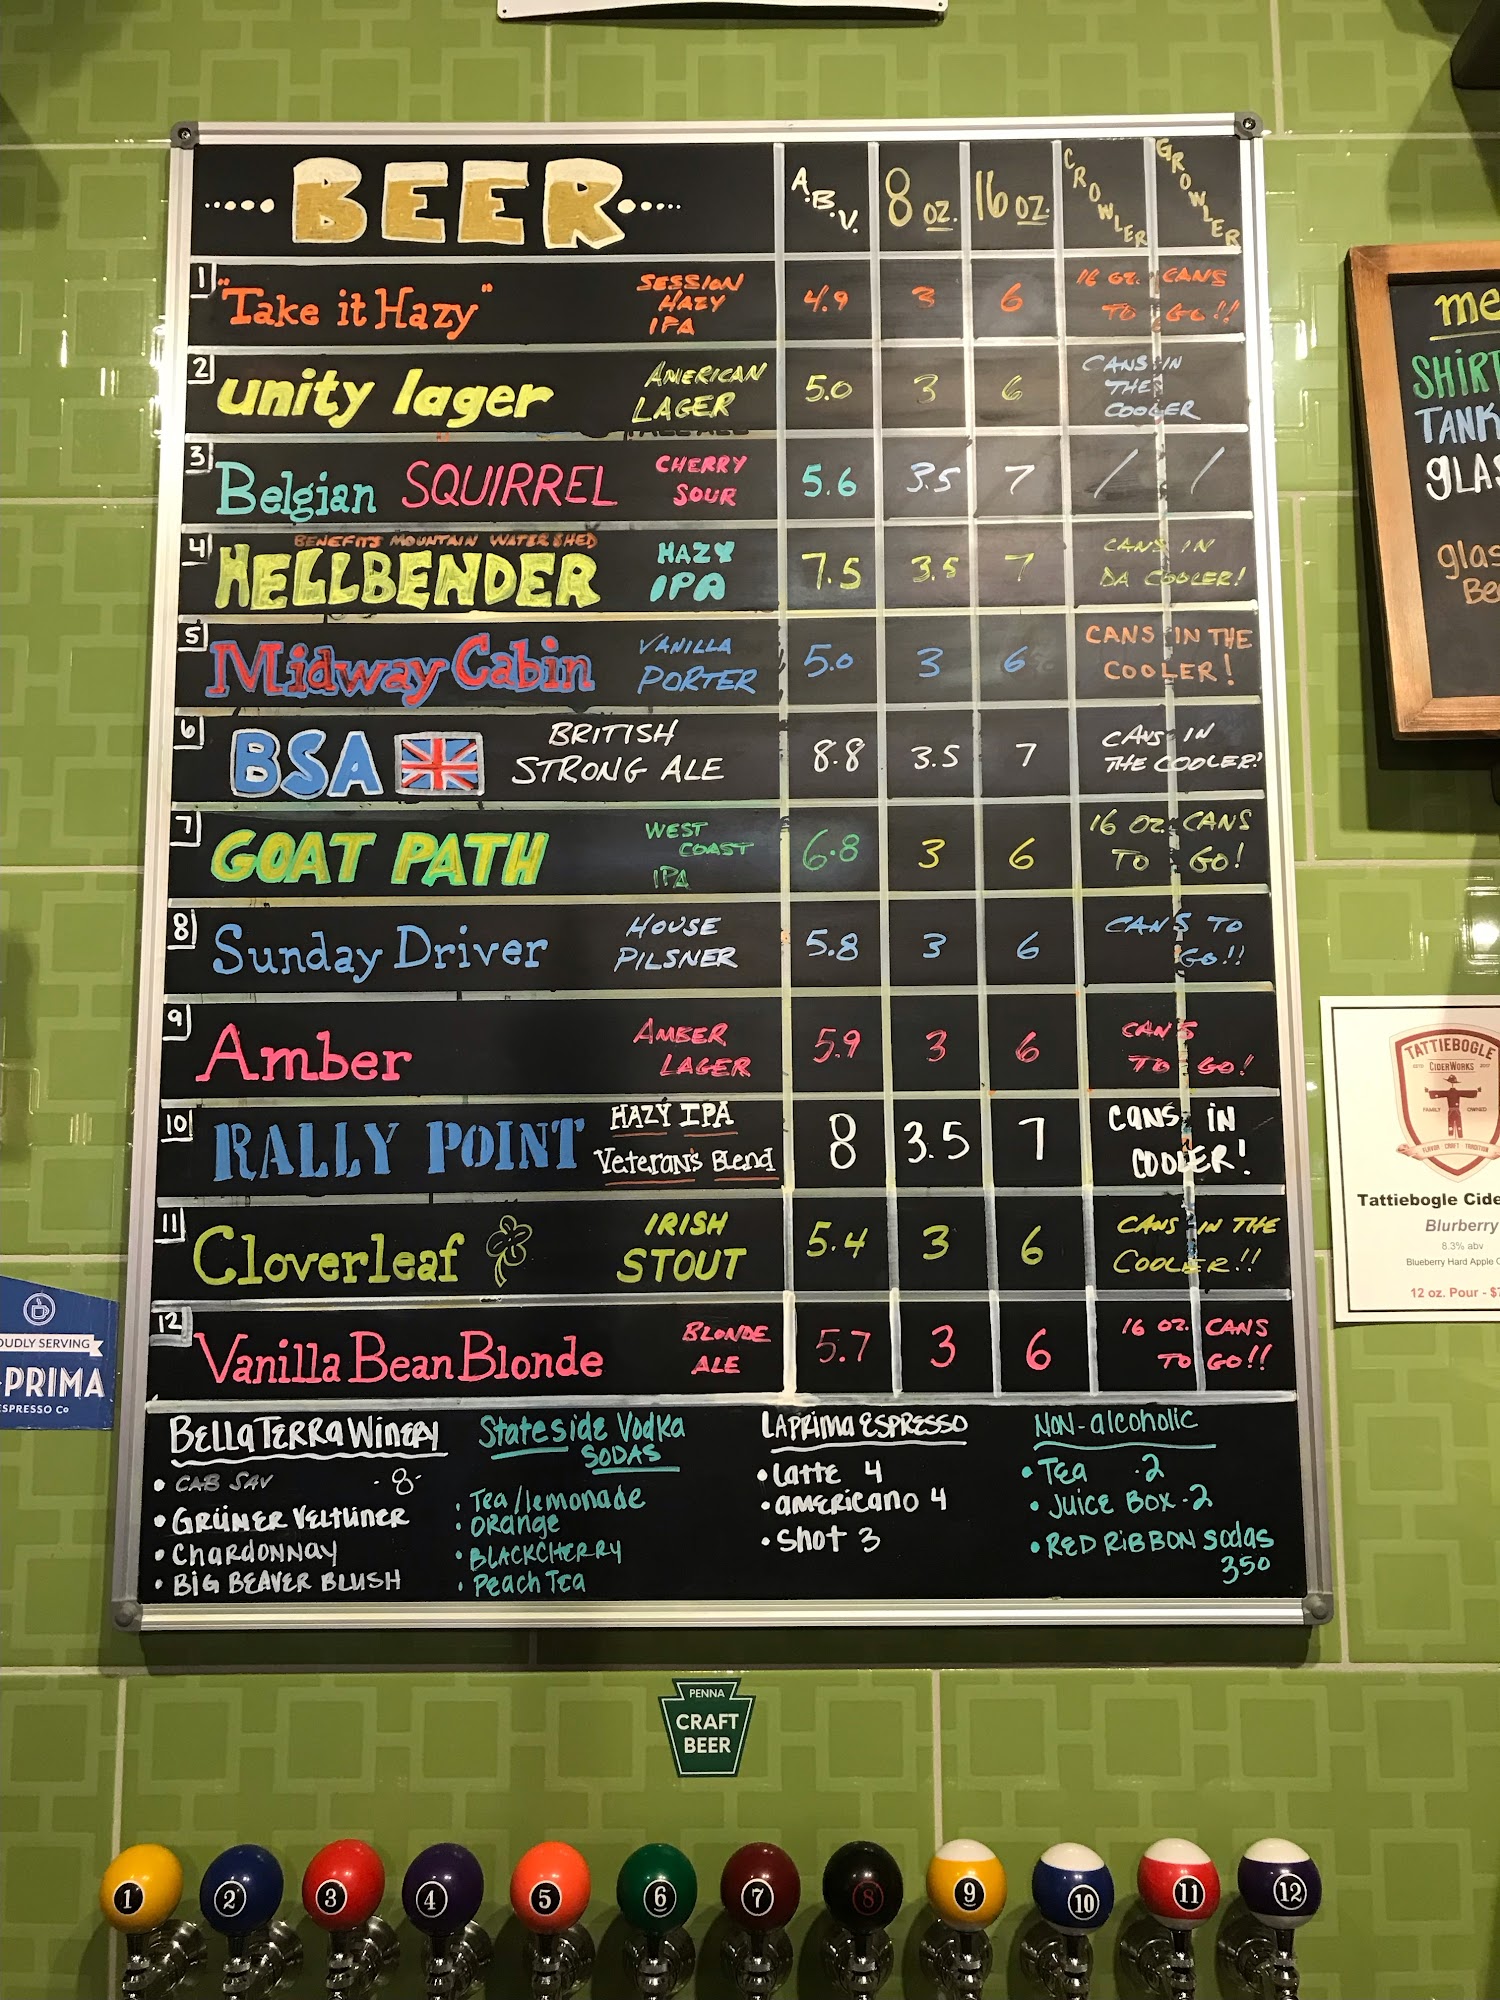 BEER
A.B.V.
8 oz.
16 oz.
CROWLER
GROWLER
1 "Take it Hazy" SESSION HAZY IPA 4.9 3 6 16 oz. CANS TO GO!!
2 unity lager AMERICAN LAGER 5.0 3 6 CANS IN THE COOLER
3 Belgian SQUIRREL CHERRY SOUR 5.6 3.5 7 / /
BENEFITS MOUNTAIN WATERSHED
4 HELLBENDER HAZY IPA 7.5 3.5 7 CANS IN DA COOLER!
5 Midway Cabin VANILLA PORTER 5.0 3 6 CANS IN THE COOLER!
6 BSA BRITISH STRONG ALE 8.8 3.5 7 CANS IN THE COOLER!
7 GOAT PATH WEST COAST IPA 6.8 3 6 16 OZ. CANS TO GO!
8 Sunday Driver HOUSE PILSNER 5.8 3 6 CANS TO GO!!
9 Amber AMBER LAGER 5.9 3 6 CANS TO GO!
10 RALLY POINT HAZY IPA Veteran's Blend 8 3.5 7 CANS IN COOLER!
11 Cloverleaf IRISH STOUT 5.4 3 6 CANS IN THE COOLER!!
12 Vanilla Bean Blonde BLONDE ALE 5.7 3 6 16 OZ. CANS TO GO!!
BELLA TERRA WINERY
• CAB SAV -8-
• GRÜNER VELTLINER
• CHARDONNAY
• BIG BEAVER BLUSH
Stateside Vodka
SODAS
• Tea/lemonade
• ORange
• BLACKCHERRY
• Peach Tea
LAPRIMA ESPRESSO
• Latte 4
• americano 4
• Shot 3
NON-alcoholic
• Tea -2
• Juice Box -2
• RED RIBBON Sodas
350
me
SHIRT
TANK
glas
glas
Be
TATTIEBOGLE
CIDERWORKS
FAMILY OWNED
FLAVOR CRAFT TRADITION
Tattiebogle Cide
Blurberry
8.3% abv
Blueberry Hard Apple C
12 oz. Pour - $
OUDLY SERVING
PRIMA
ESPRESSO Co
PENNA
CRAFT
BEER
1 2 3 4 5 6 7 8 9 10 11 12